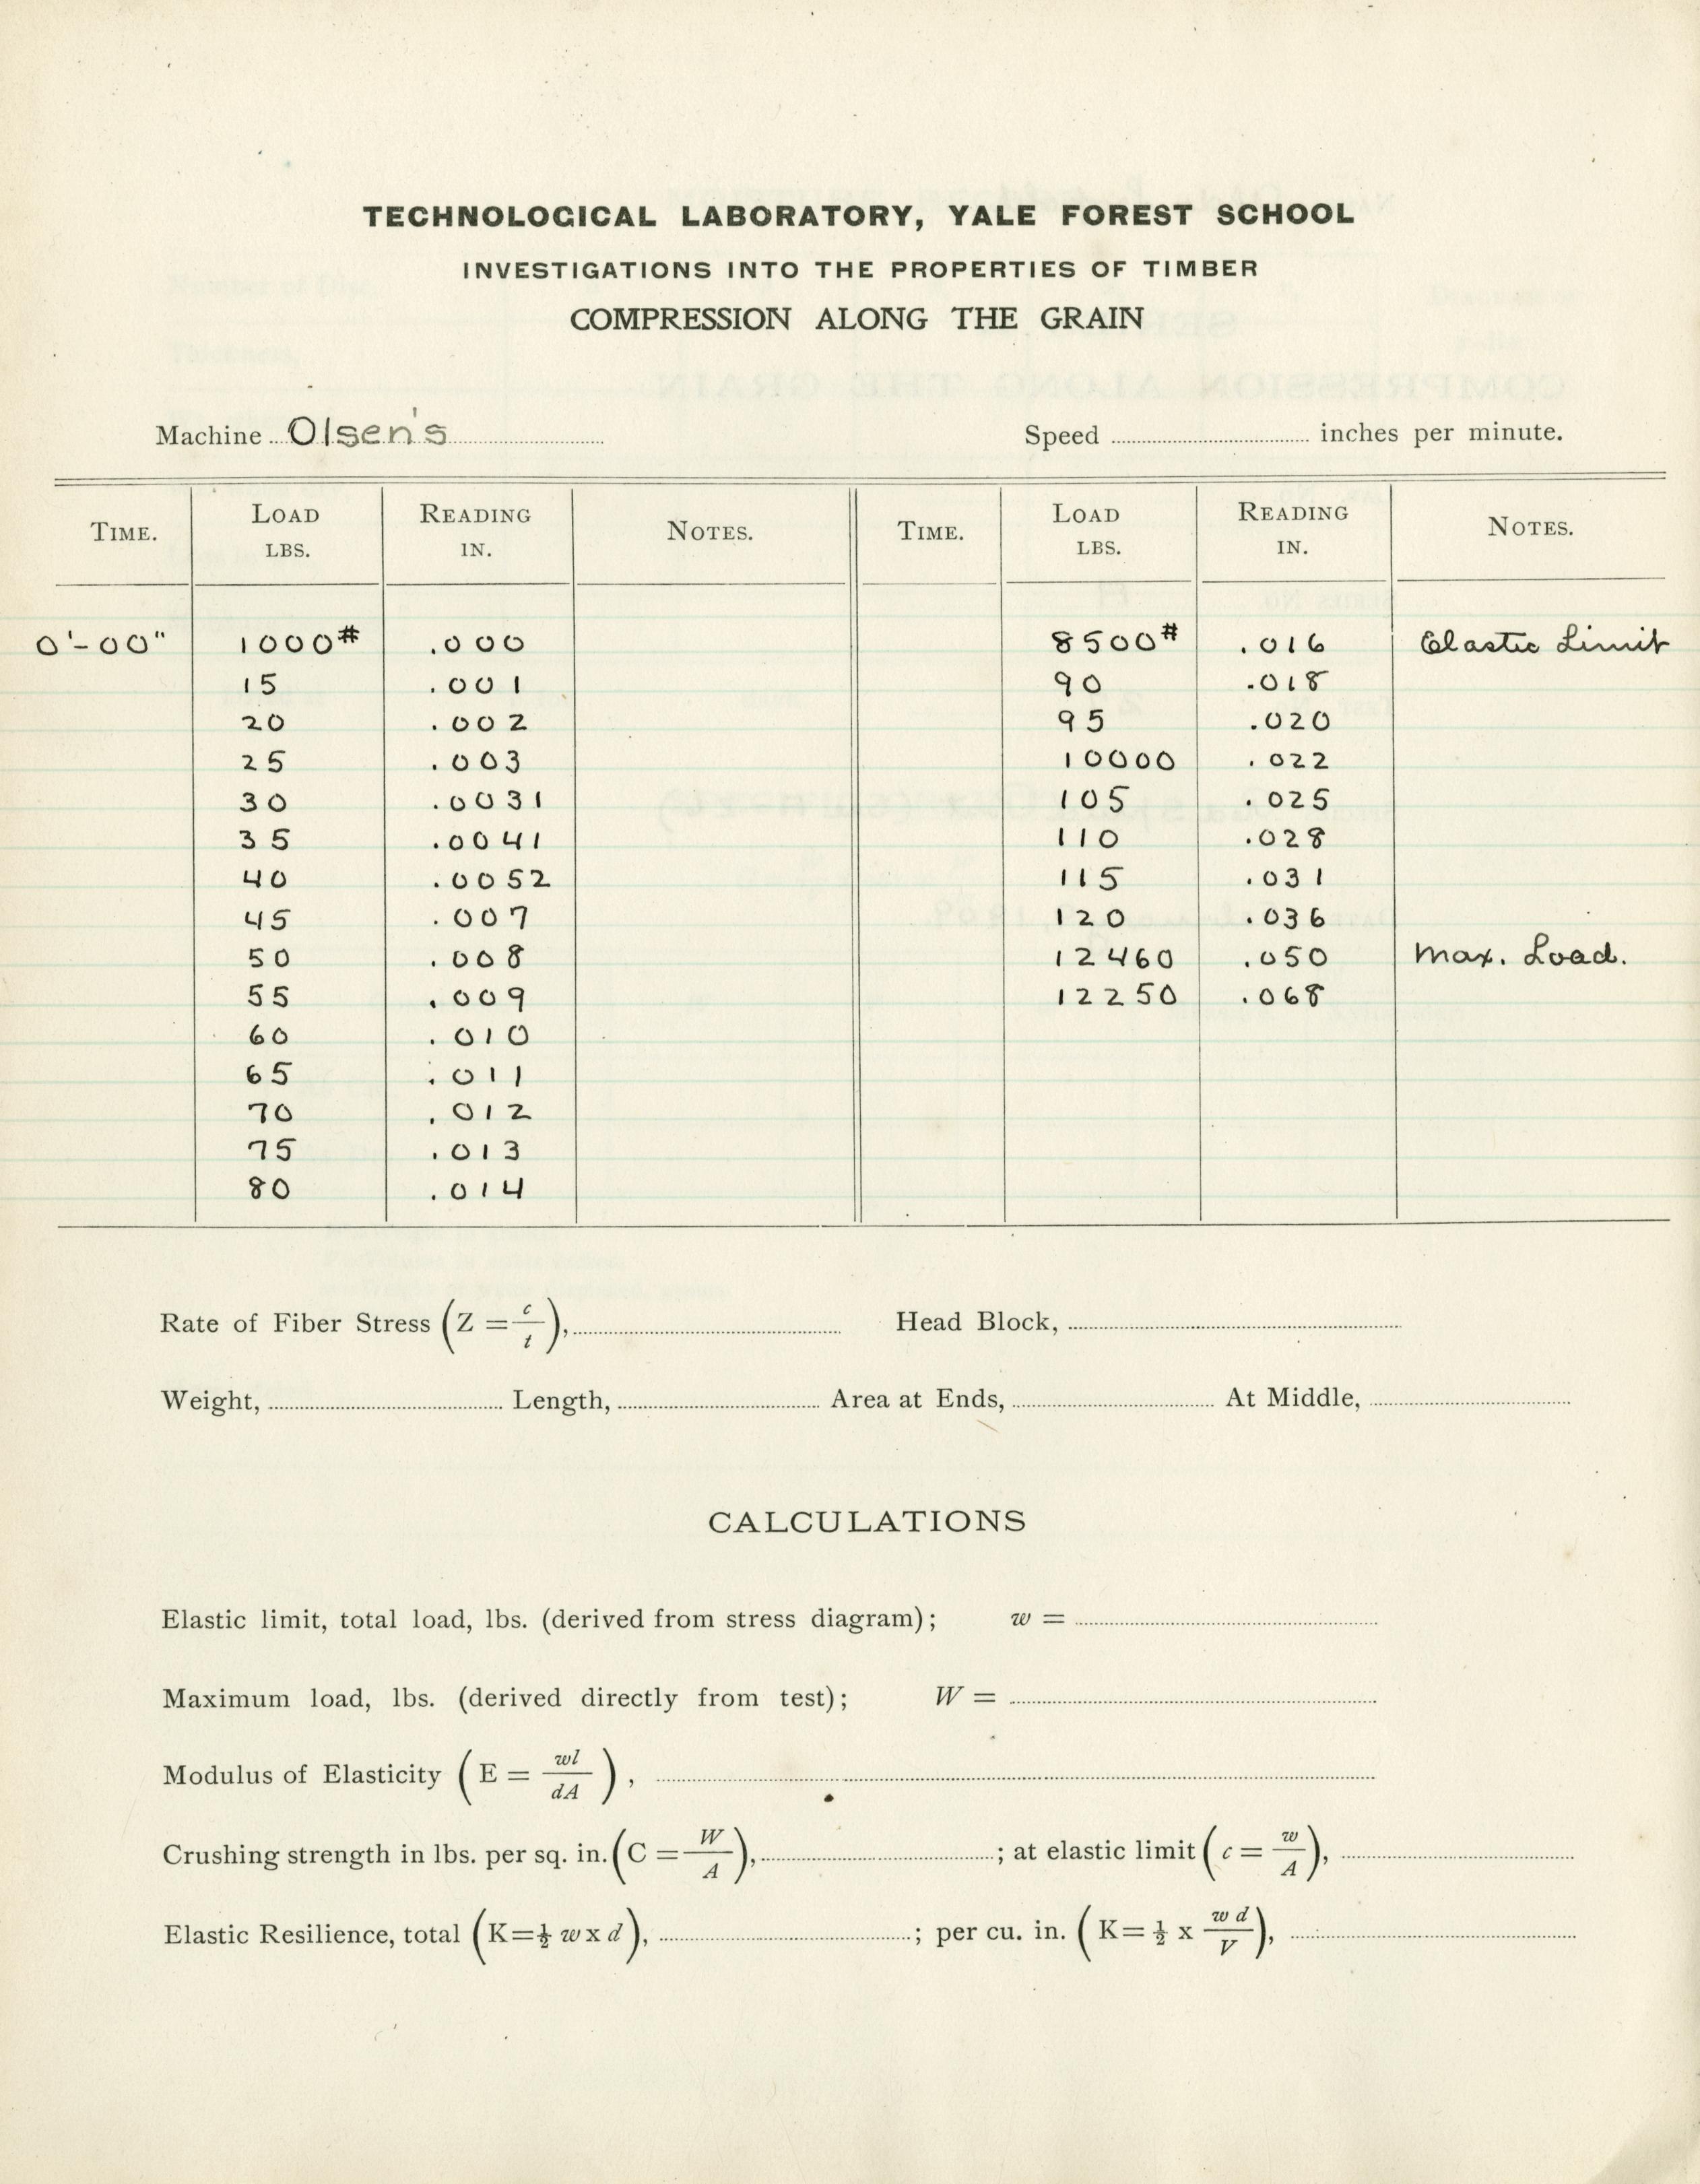 TECHNOLOGICAL LABORATORY, YALE FOREST SCHOOL
INVESTIGATIONS INTO THE PROPERTIES OF TIMBER
COMPRESSION ALONG THE GRAIN
Machine Olsen's Speed inches per minute.
TIME. LOAD LBS. READING IN. NOTES. TIME. LOAD LBS. READING IN. NOTES.
0'-00" 1000# .000 8500# .016 Elastic Limit
15 .001 90 .018
20 .002 95 .020
25 .003 10000 .022
30 .0031 105 .025
35 .0041 110 .028
40 .0052 115 .031
45 .007 120 .036
50 .008 12460 .050 Max. Load.
55 .009 12250 .068
60 .010
65 .011
70 .012
75 .013
80 .014
Rate of Fiber Stress (Z = c/t), Head Block,
Weight, Length, Area at Ends, At Middle,
CALCULATIONS
Elastic limit, total load, lbs. (derived from stress diagram); w =
Maximum load, lbs. (derived directly from test); W =
Modulus of Elasticity (E = wl/dA),
Crushing strength in lbs. per sq. in. (C = W/A), ; at elastic limit (c = w/A),
Elastic Resilience, total (K=½ w x d), ; per cu. in. (K= ½ x w d/V),